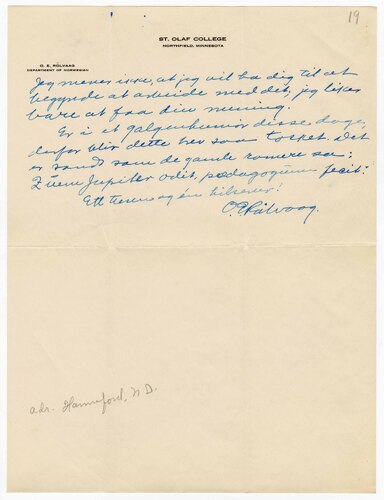 19
ST. OLAF COLLEGE
NORTHFIELD, MINNESOTA
O. E. RÖLVAAG
DEPARTMENT OF NORWEGIAN
Jeg mener ikke, at jeg vil ha dig til at
begynde at arbeide med det; jeg likes
bare at faa din mening.
Er i et galgenhumør disse dage,
derfor blir dette brev saa tosket. Det
er sandt som de gamle romere sa:
Quem Jupiter odit, pædagogum fecit.
Ett tusen og én hilsener!
O E Rölvaag.
adr. Hannaford, N D.